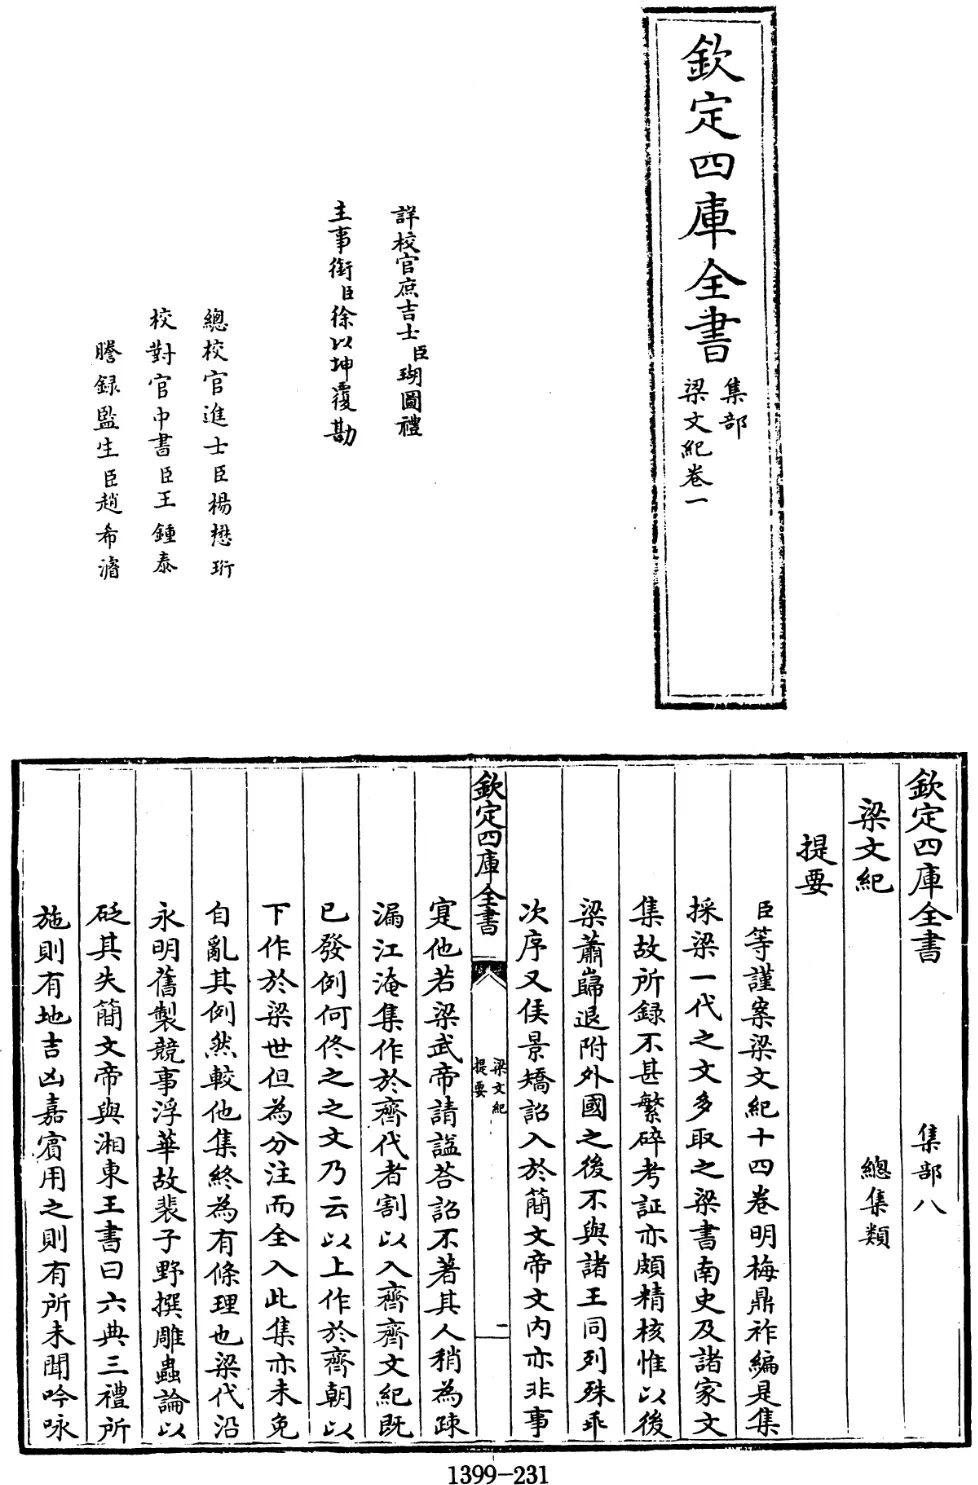 欽定四庫全書
集部
梁文紀卷一
詳校官庶吉士臣瑚圖禮
主事銜臣徐以坤覆勘
總校官進士臣楊懋珩
校對官中書臣王鍾泰
謄録監生臣趙希濬
欽定四庫全書 集部八
梁文紀 總集類
提要
臣等謹案梁文紀十四卷明梅鼎祚編是集
採梁一代之文多取之梁書南史及諸家文
集故所録不甚繁碎考証亦頗精核惟以後
梁蕭巋退附外國之後不與諸王同列殊乖
次序又侯景矯詔入於簡文帝文内亦非事
欽定四庫全書
梁文紀
提要
一
寔他若梁武帝請諡荅詔不著其人稍為疎
漏江淹集作於齊代者割以入齊齊文紀既
已發例何佟之之文乃云以上作於齊朝以
下作於梁世但為分注而全入此集亦未免
自亂其例然較他集終為有條理也梁代沿
永明舊製競事浮華故裴子野撰雕蟲論以
砭其失簡文帝與湘東王書曰六典三禮所
施則有地吉凶嘉賓用之則有所未聞吟咏
1399-231